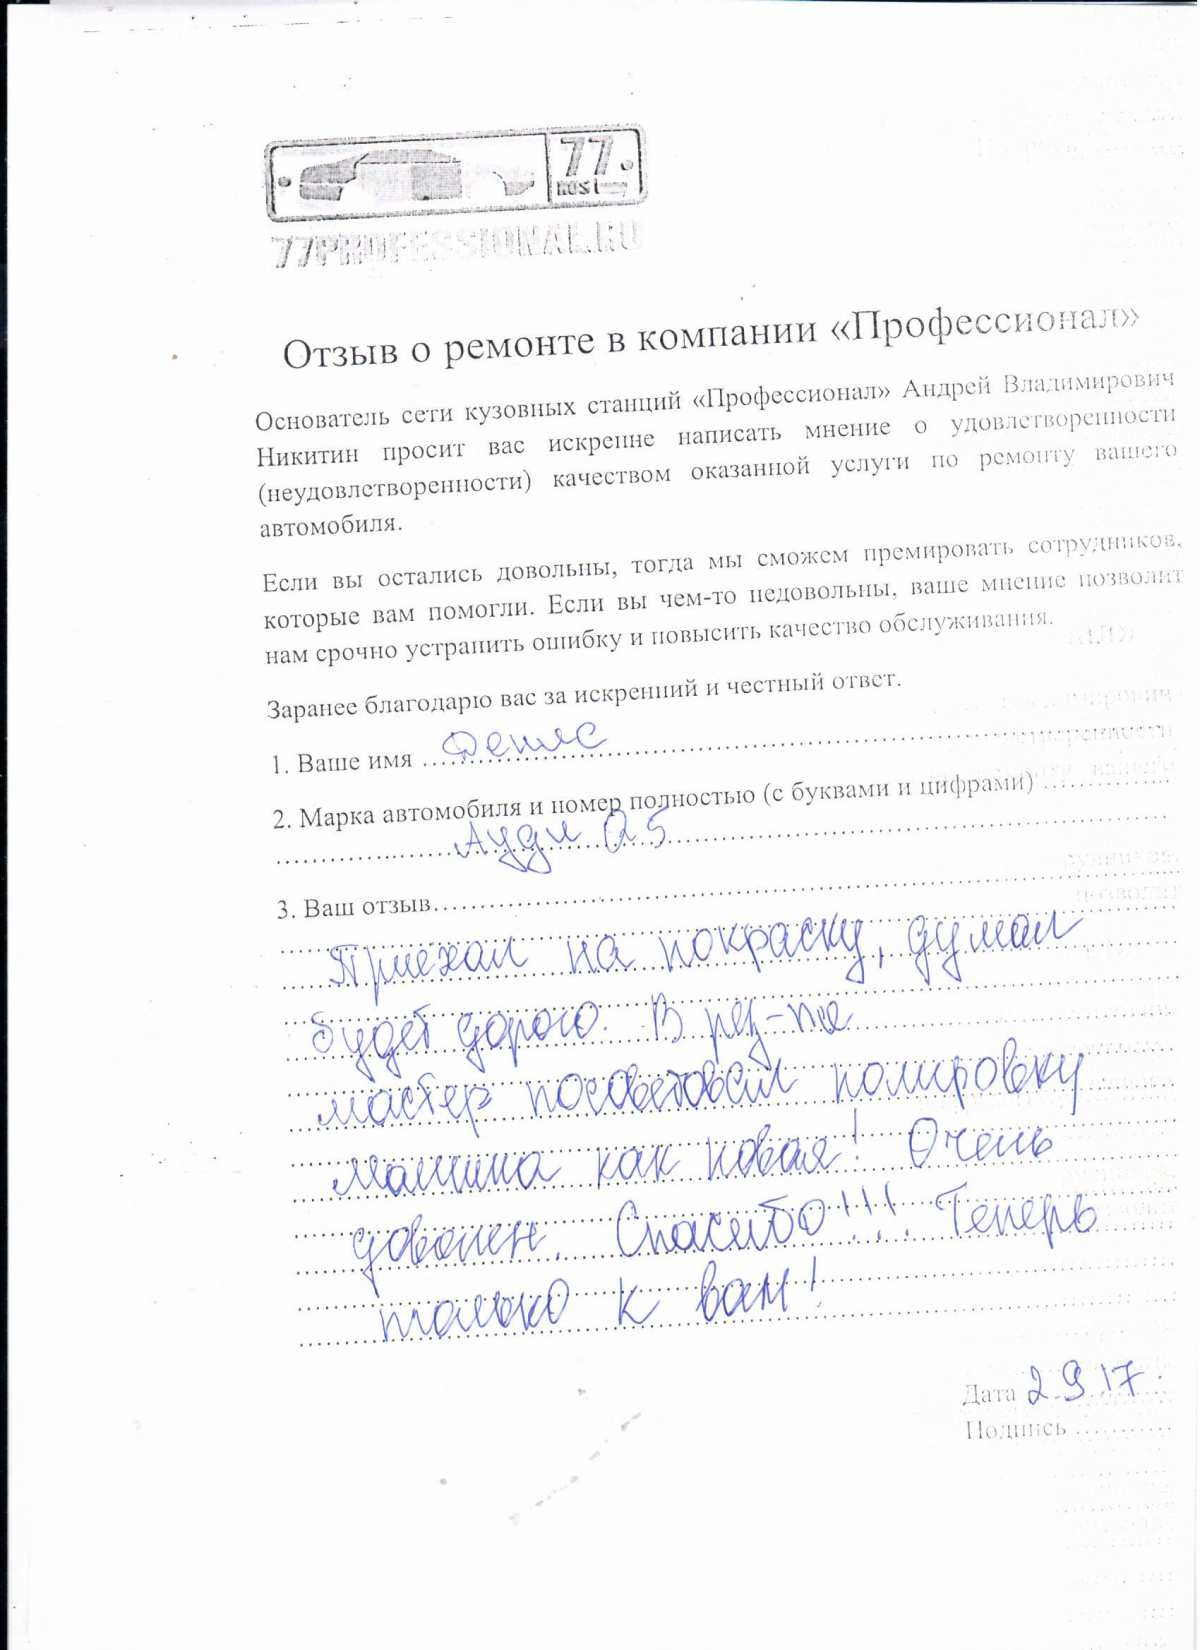 77
RUS
77PROFESSIONAL.RU
Отзыв о ремонте в компании «Профессионал»
Основатель сети кузовных станций «Профессионал» Андрей Владимирович
Никитин просит вас искренне написать мнение о удовлетворенности
(неудовлетворенности) качеством оказанной услуги по ремонту вашего
автомобиля.
Если вы остались довольны, тогда мы сможем премировать сотрудников,
которые вам помогли. Если вы чем-то недовольны, ваше мнение позволит
нам срочно устранить ошибку и повысить качество обслуживания.
Заранее благодарю вас за искренний и честный ответ.
1. Ваше имя Денис
2. Марка автомобиля и номер полностью (с буквами и цифрами)
Ауди Q5
3. Ваш отзыв
Приехал на покраску, думал
будет дорого. В рез-те
мастер посоветовал полировку
машина как новая! Очень
доволен. Спасибо!!! Теперь
только к вам!
Дата 2 9 17.
Подпись